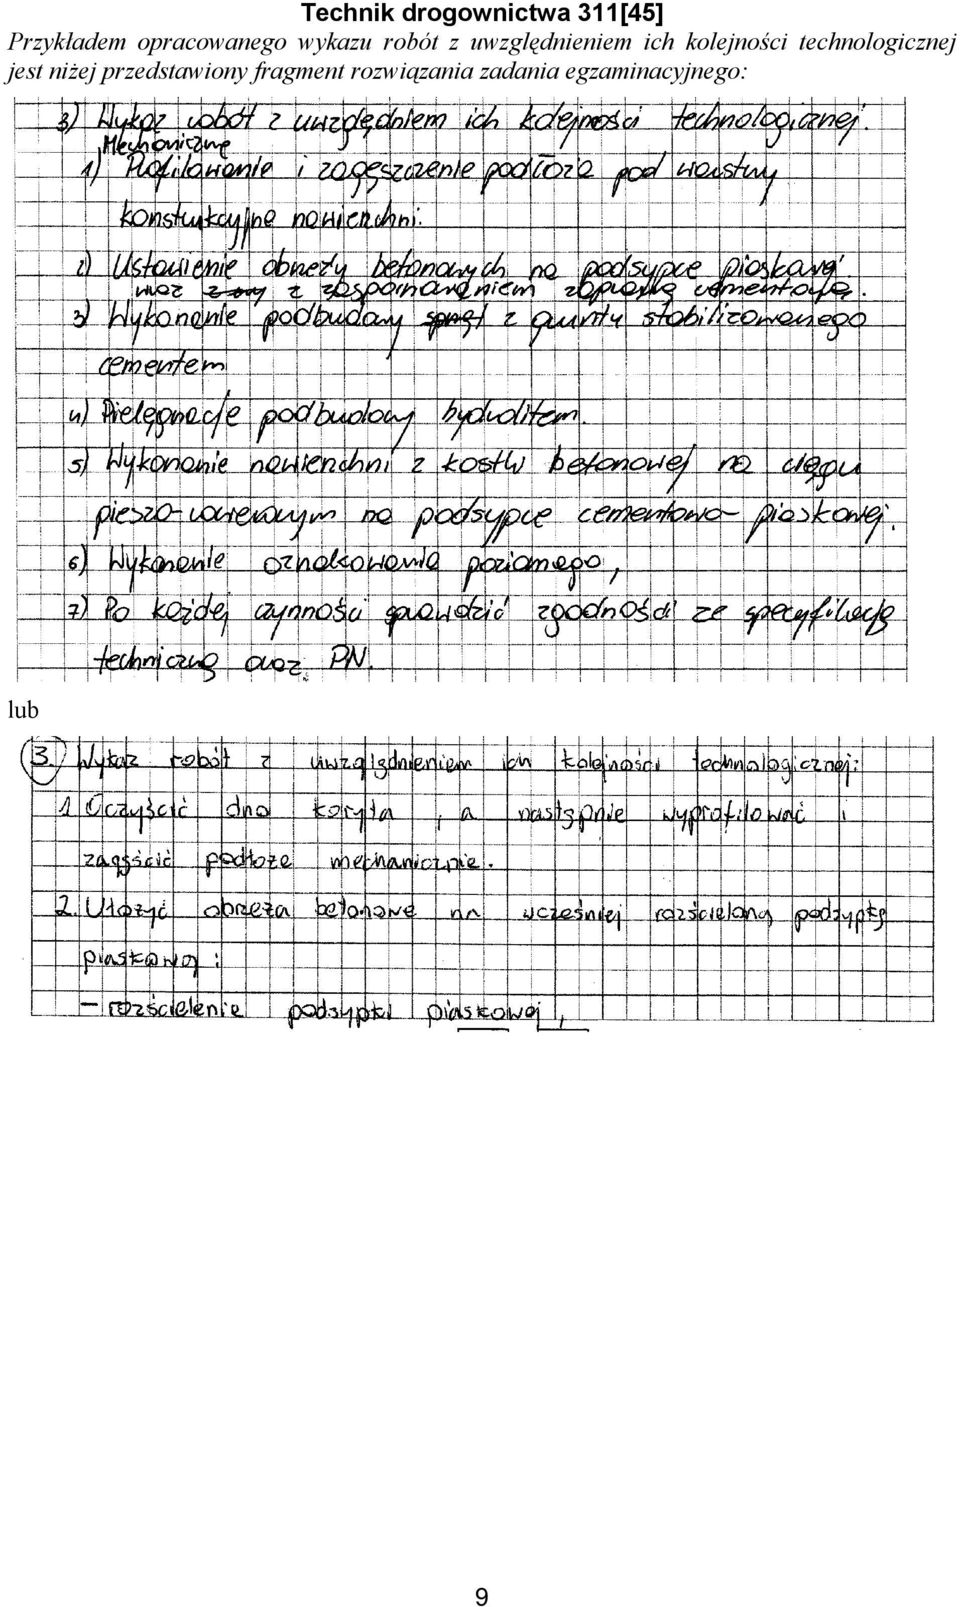 Technik drogownictwa 311[45]
Przykładem opracowanego wykazu robót z uwzględnieniem ich kolejności technologicznej
jest niżej przedstawiony fragment rozwiązania zadania egzaminacyjnego:
3) Wykaz robót z uwzględniem ich kolejności technologicznej.
Mechaniczne
1) Profilowanie i zagęszczenie podłoża pod warstwy
konstrukcyjne nawierzchni.
2) Ustawienie obrzeży betonowych na podsypce piaskowej
wraz z zaspoinowaniem zaprawą cementową.
3) Wykonanie podbudowy z gruntu stabilizowanego
cementem
4) Pielęgnacje podbudowy hydrolitem.
5) Wykonanie nawierzchni z kostki betonowej na ciągu
pieszo-rowerowym na podsypce cementowo-piaskowej.
6) Wykonanie oznakowania poziomego,
7) Po każdej czynności sprawdzić zgodność ze specyfikacją
techniczną oraz PN.
lub
3. Wykaz robót z uwzględnieniem ich kolejności technologicznej:
1. Oczyścić dno koryta, a następnie wyprofilować i
zagęścić podłoże mechanicznie.
2. Ułożyć obrzeża betonowe na wcześniej rozścieloną podsypkę
piaskową:
- rozścielenie podsypki piaskowej,
9